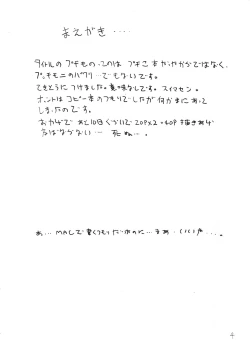 まえがき・・・・
タイトルの プチもの、てのは プチこ本だったからではなく、
プッチモニのパクリ…でもないです。
てきとうにつけました。意味なしです。スイマセン。
ホントは コピー本のつもりでしたが何かオにあって
しまったので。
おかげで あと10日くらいで20P×2=40P描きあげ
ねばならない… 死ぬ…。
あ… MACで書くつもりだったのに… まぁ、いいか……。
4